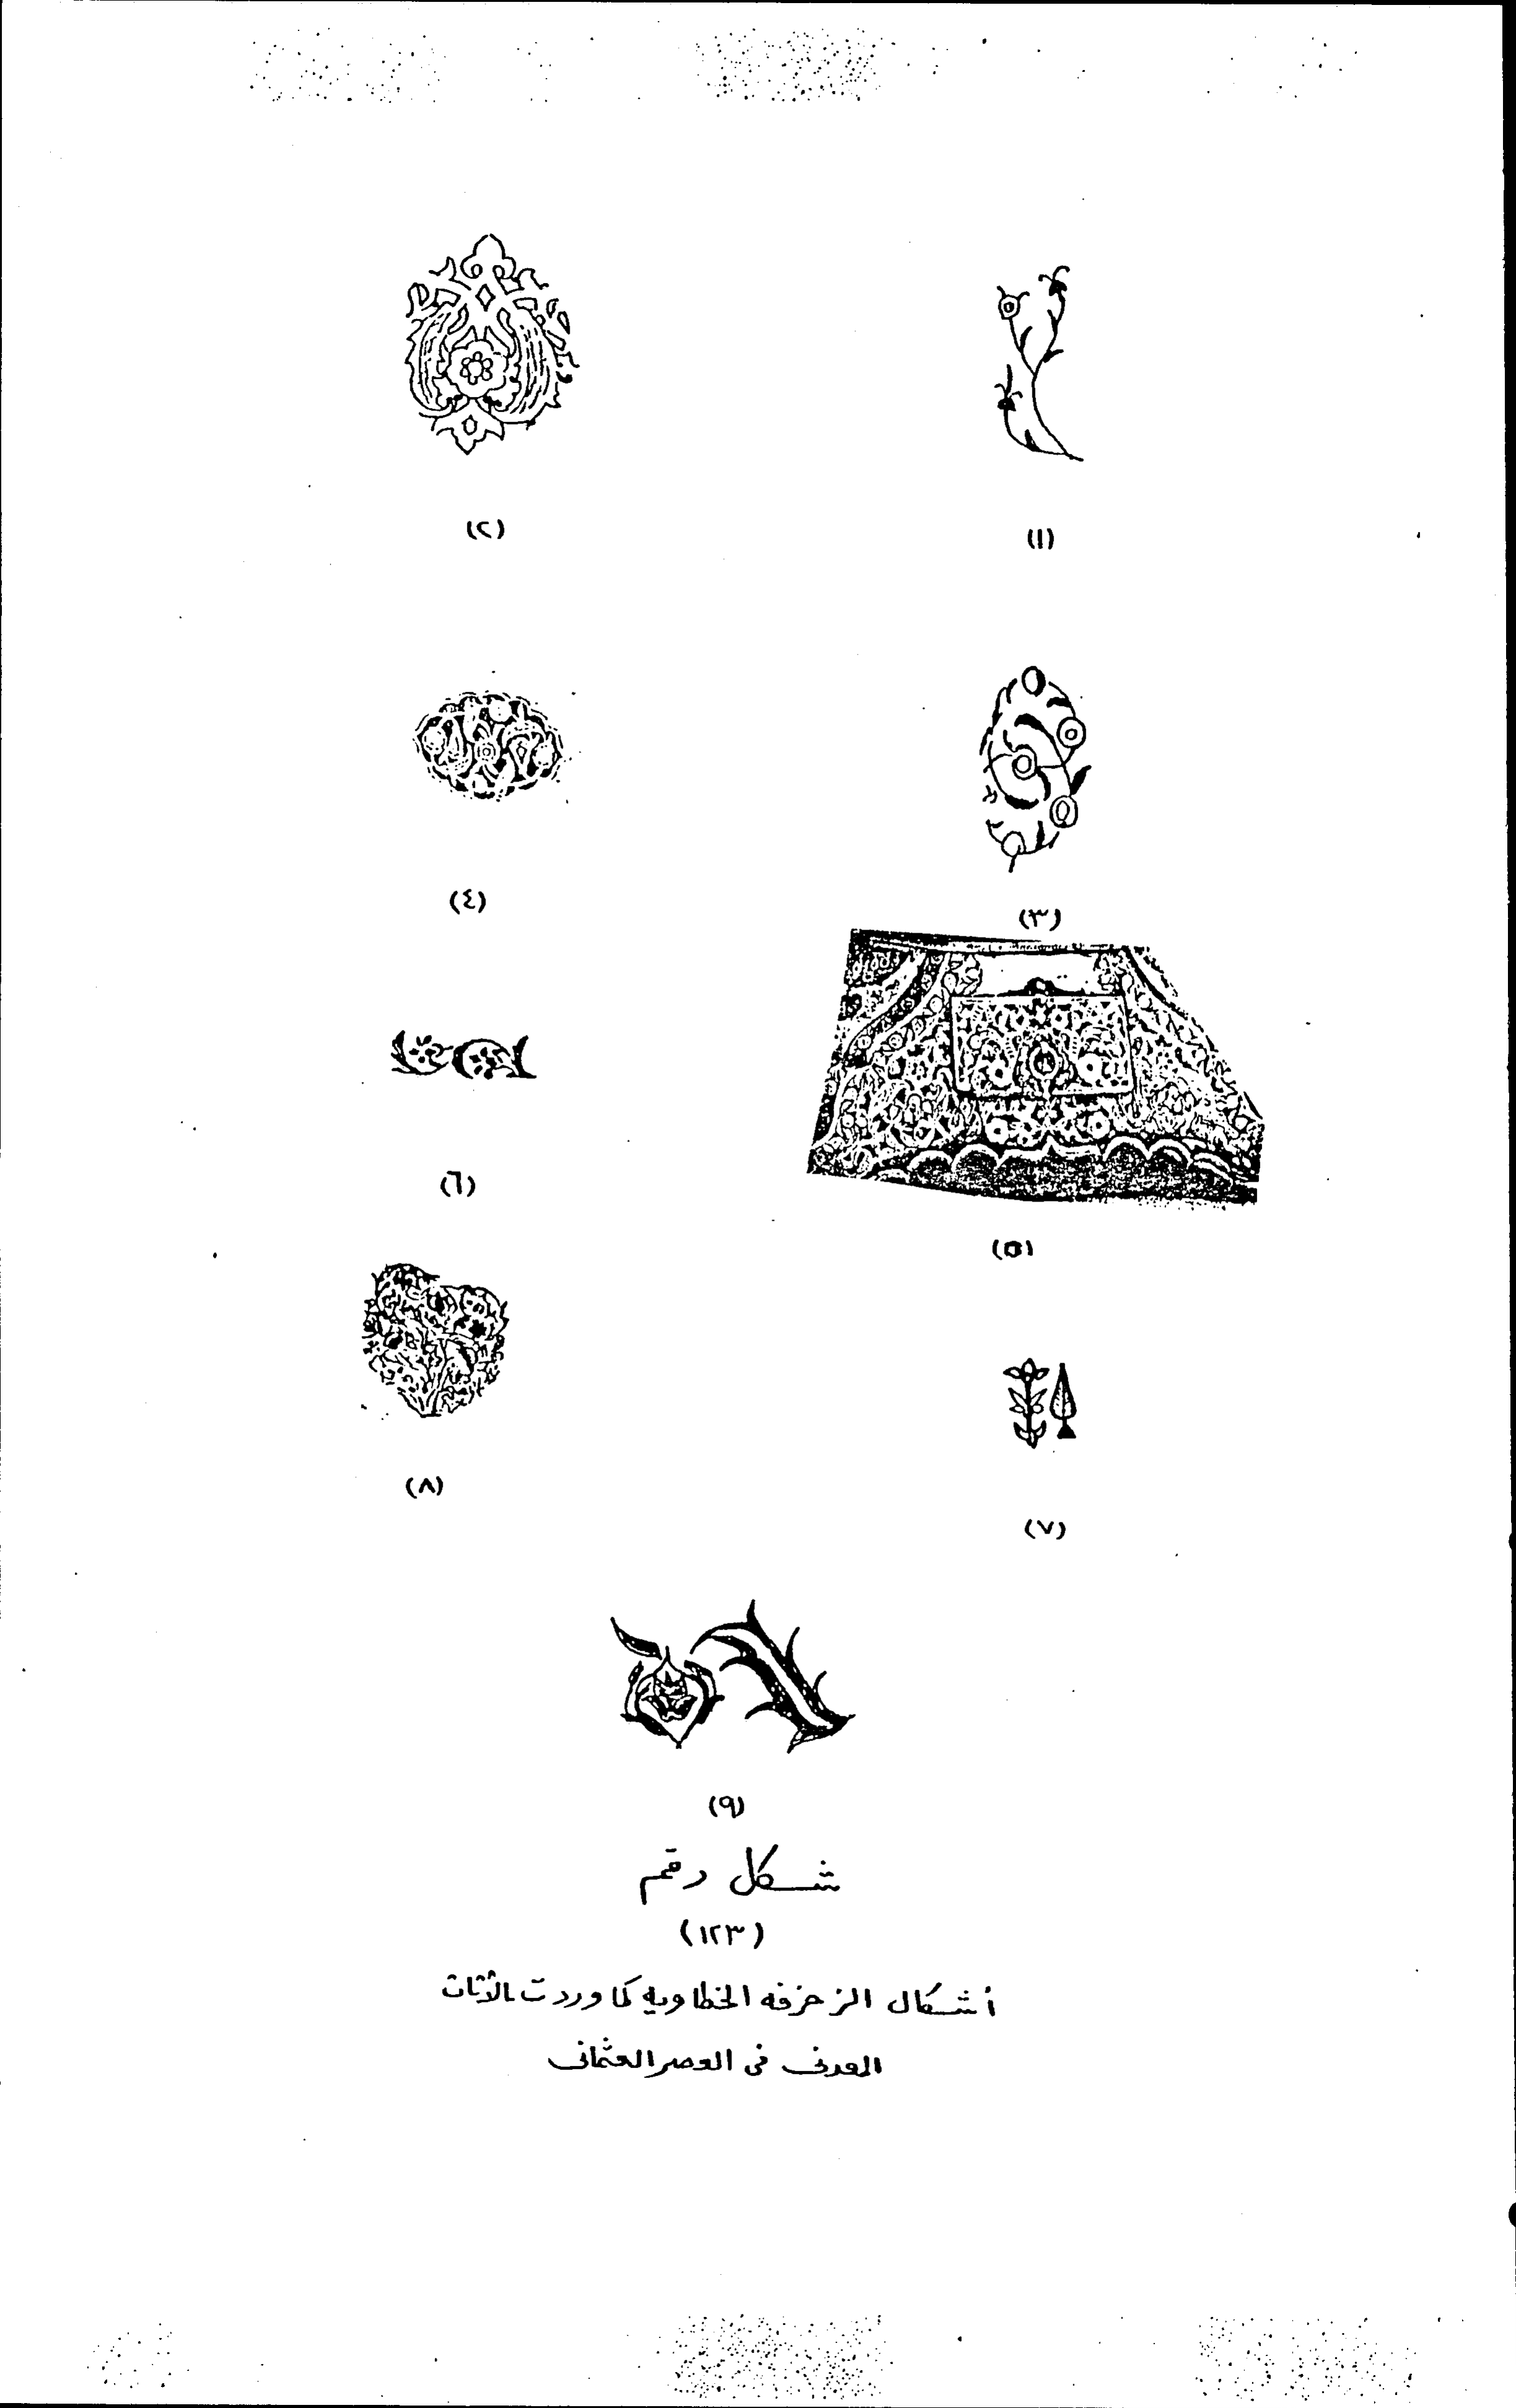 (١) (٢)
(٣) (٤)
(٥) (٦)
(٧) (٨)
(٩)
شكل رقم
(١٢٣)
أشكال الزخرفه الخطاويه كما وردت بالأثاث
المعدنى فى العصر العثمانى